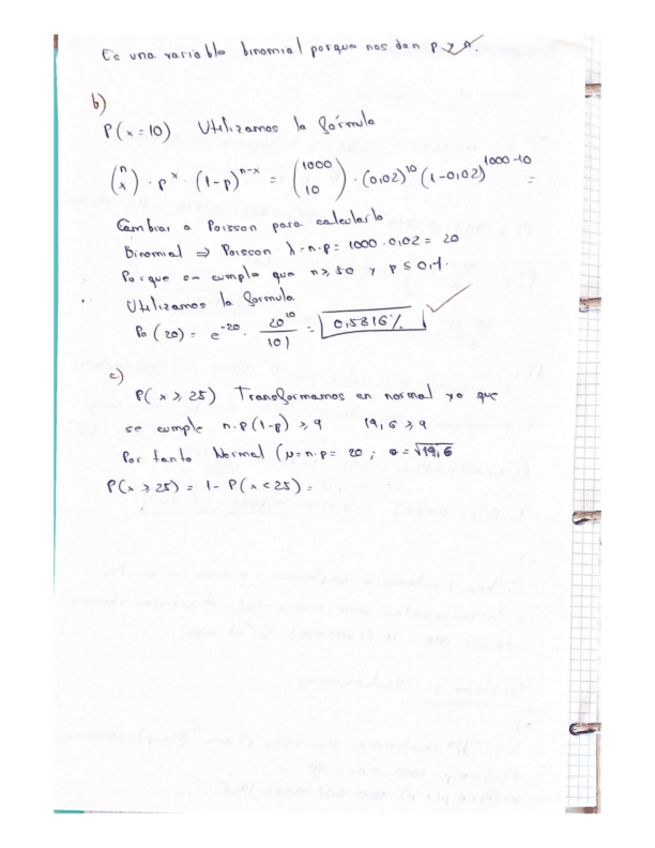 Es una variable binomial porque nos dan p y n.
b)
P(x=10) Utilizamos la fórmula
(n x) · p^x · (1-p)^n-x = (1000 10) · (0,02)^10 (1-0,02)^1000-10 =
Cambiar a Poisson para calcularlo
Binomial ⇒ Poisson λ=n·p= 1000·0,02 = 20
Porque se cumple que n≥50 y p≤0,1.
Utilizamos la formula
Po (20) = e^-20 · 20^10 / 10! = 0,5816%
c)
P(x ≥ 25) Transformamos en normal ya que
se cumple n·p(1-p) ≥ 9 19,6 ≥ 9
Por tanto Normal (μ=n·p= 20 ; σ=√19,6
P(x ≥ 25) = 1 - P(x < 25) =